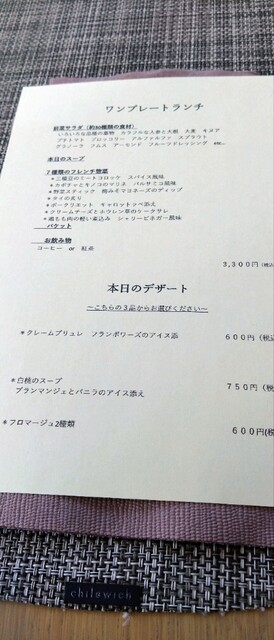 ワンプレートランチ
前菜サラダ（約30種類の食材）
いろいろなお種の葉物 カラフルな人参と大根 大麦 キヌア
プチトマト ブロッコリー アルファルファ スプラウト
グラノーラ フムス アーモンド フルーツドレッシング etc…
本日のスープ
7種類のフレンチ惣菜
＊三種豆のミートコロッケ スパイス風味
＊カボチャとキノコのマリネ バルサミコ風味
＊野菜スティック 柚みそマヨネーズのディップ
＊タイの炙り
＊ポークリエット キャロットラペ添え
＊クリームチーズとホウレン草のケークサレ
＊鶏もも肉の軽い煮込み シェリービネガー風味
バケット
お飲み物
コーヒー or 紅茶
3,300円（税込
本日のデザート
～こちらの3品からお選びください～
＊クレームブリュレ フランボワーズのアイス添
600円（税込
＊白桃のスープ
ブランマンジェとバニラのアイス添え
750円（税
＊フロマージュ2種類
600円(税
chilewich